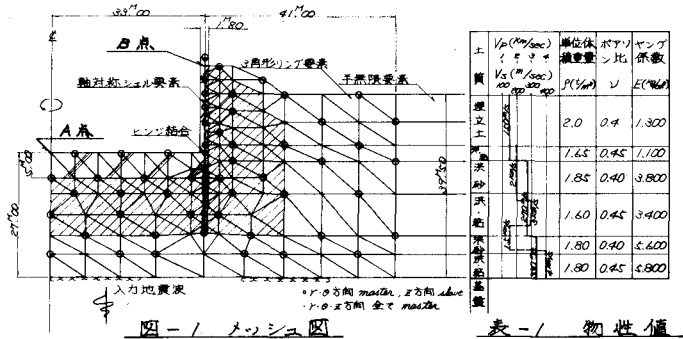 33ᴹ00
41ᴹ00
1ᴹ80
B点
3角形リング要素
半無限要素
軸対称シェル要素
ヒンジ結合
A点
27ᴹ00
39ᴹ50
入力地震波
○ r・θ方向 master, z方向 slave
・r・θ・z方向 全て master
図-1 メッシュ図
土質
Vp (Km/sec)
1 2 3 4
Vs (m/sec)
100 200 300 400
単位体積重量
ρ(t/m³)
ポアソン比
ν
ヤング係数
埋立土 2.0 0.4 1.300
1.65 0.45 1.100
洪砂 1.85 0.40 3.800
洪・粘 1.60 0.45 3.400
洪砂 1.80 0.40 5.600
洪粘 1.80 0.45 5.800
基盤
表-1 物性値